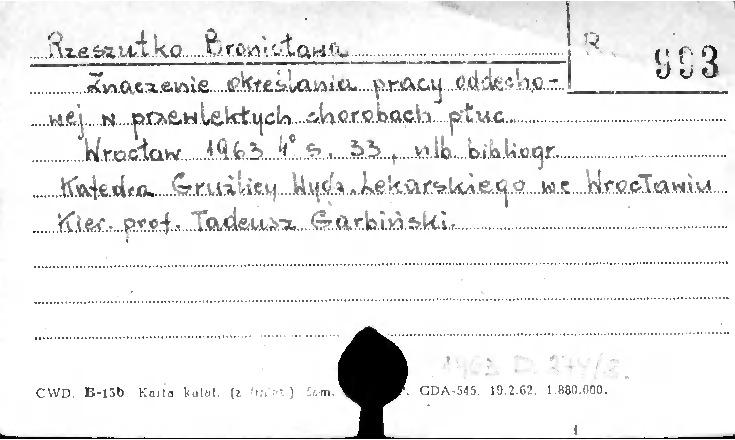 Rzeszutko Bronisława
R 993
Znaczenie określania pracy oddecho-
wej w przewlekłych chorobach płuc.
Wrocław 1963 4° s. 33, nlb. bibliogr.
Katedra Gruźlicy Wydz. Lekarskiego we Wrocławiu
Kier. prof. Tadeusz Garbiński.
1963 D. 274/3.
CWD. B-15b Karta katal. (z) Sam. GDA-545. 19.2.62. 1.880.000.
1